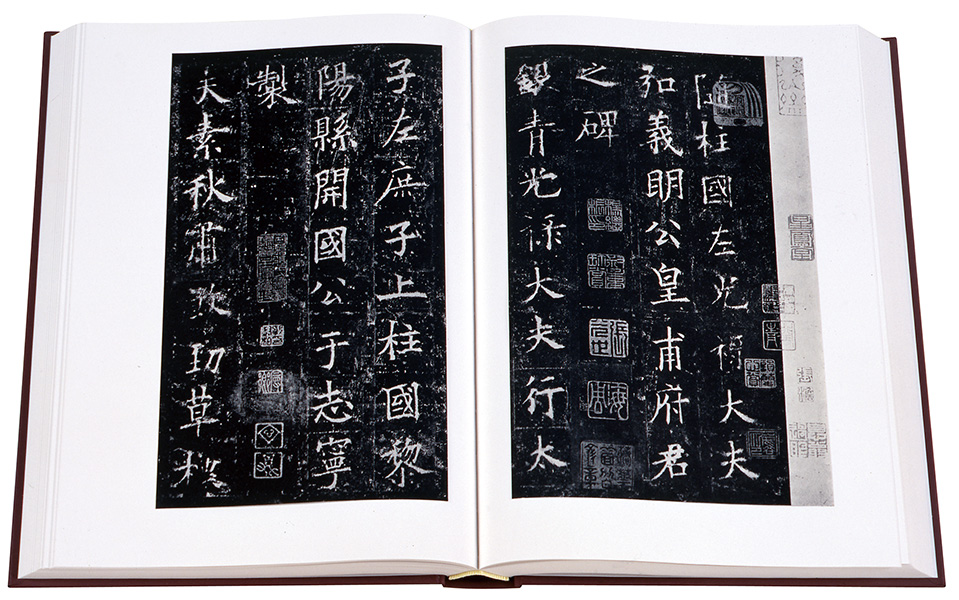 隨柱國左光祿大夫
弘義明公皇甫府君
之碑
銀青光祿大夫行太
子左庶子上柱國黎
陽縣開國公于志寧
製
夫素秋肅煞勁草標